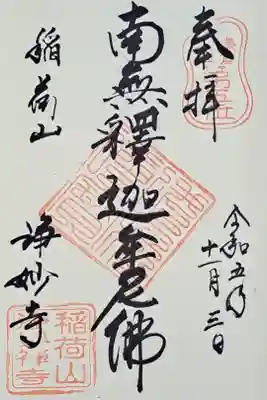 奉拝
令和五年
十一月三日
南無釋迦牟尼佛
稲荷山
浄妙寺
稲荷山